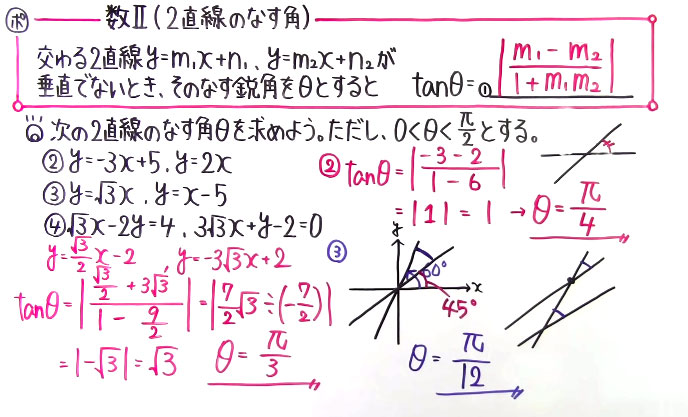 ポ 数Ⅱ(2直線のなす角)
交わる2直線y=m₁x+n₁、y=m₂x+n₂が
垂直でないとき、そのなす鋭角をθとすると tanθ=①|(m₁-m₂)/(1+m₁m₂)|
次の2直線のなす角θを求めよう。ただし、0<θ<π/2とする。
②y=-3x+5、y=2x
③y=√3x、y=x-5
④√3x-2y=4、3√3x+y-2=0
② tanθ=|(-3-2)/(1-6)|
=|1|=1 → θ=π/4
y=√3/2x-2 y=-3√3x+2
tanθ=|(√3/2+3√3)/(1-9/2)|=|7/2√3÷(-7/2)|
=|-√3|=√3 θ=π/3
③
y
x
60°
45°
θ=π/12